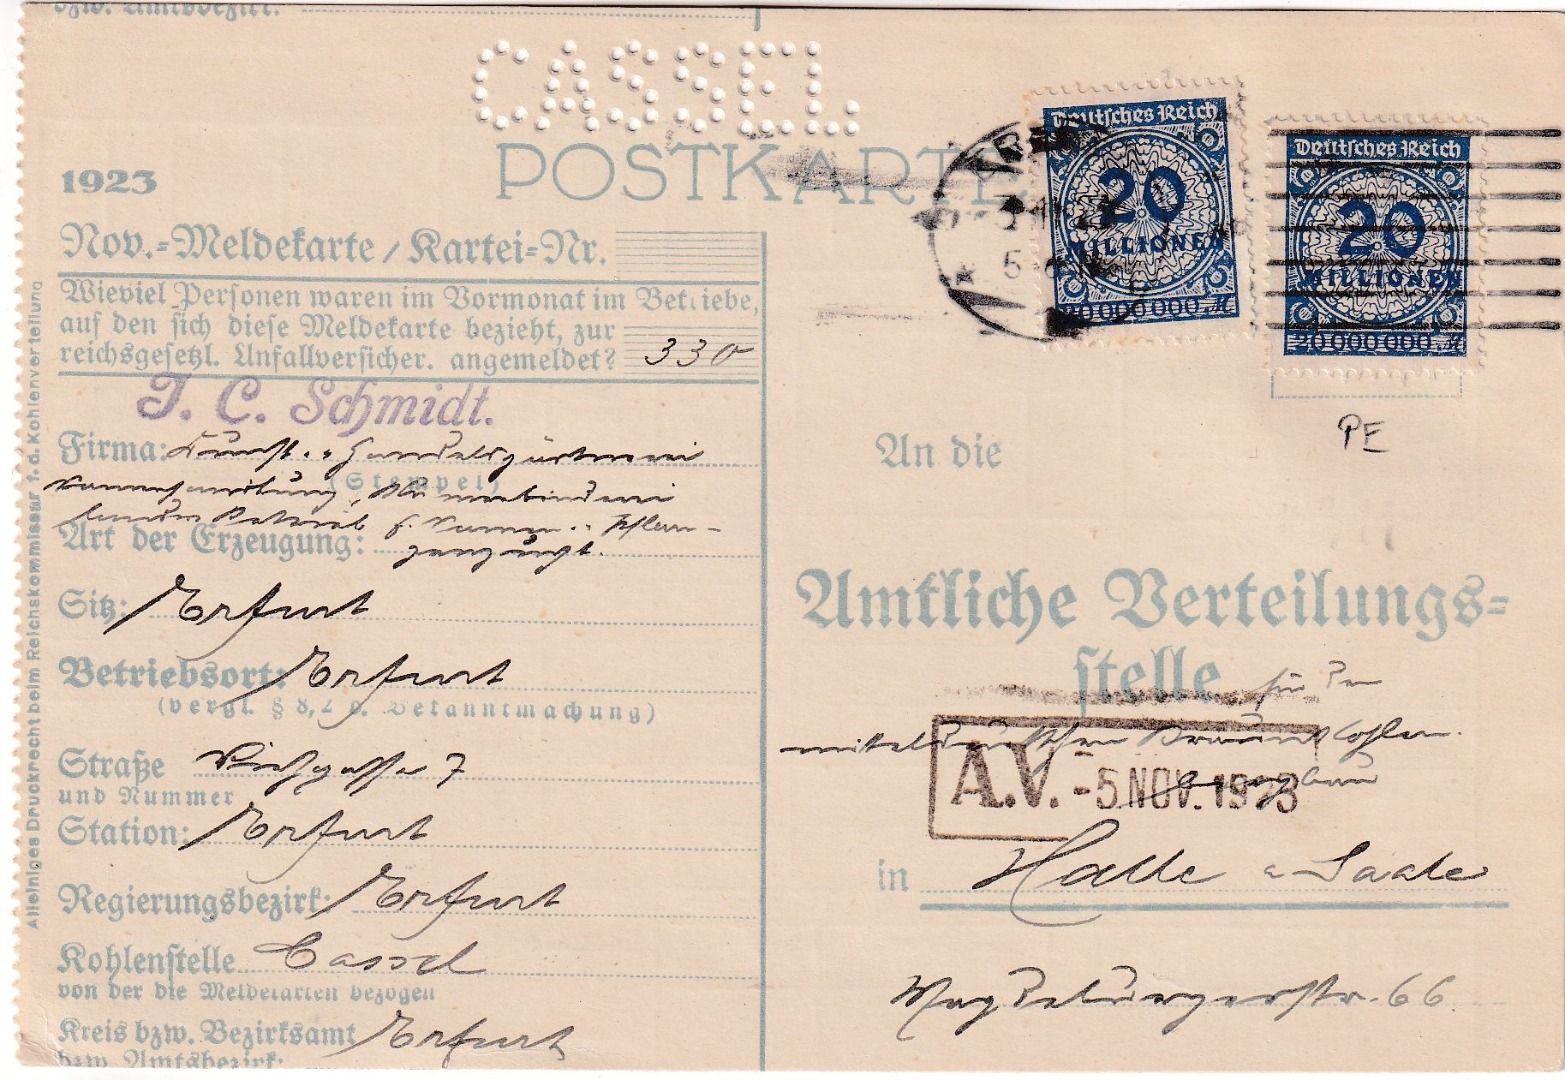 bzw. Amtsbezirk:
CASSEL
POSTKARTE
1923
Nov.=Meldekarte / Kartei=Nr.
Wieviel Personen waren im Vormonat im Betriebe,
auf den sich diese Meldekarte bezieht, zur
reichsgesetzl. Unfallversicher. angemeldet? 330
J. C. Schmidt.
Firma: Kunst- u. Handelsgärtnerei
(Stempel)
Samenhandlung, Blumenbinderei
Art der Erzeugung: f. Samen- u. Pflan-
zenzucht.
Sitz: Erfurt
Betriebsort: Erfurt
(vergl. § 8,2 d. Bekanntmachung)
Straße
und Nummer
7
Station: Erfurt
Regierungsbezirk: Erfurt
Kohlenstelle Cassel
von der die Meldekarten bezogen
Kreis bzw. Bezirksamt Erfurt
bzw. Amtsbezirk:
Alleiniges Druckrecht beim Reichskommissar f. d. Kohlenverteilung
Deutsches Reich
20
MILLIONEN
20000000 M
Deutsches Reich
20
MILLIONEN
20000000 M
PE
An die
Amtliche Verteilungs=
stelle für den
mitteldeutschen Braunkohlen-
bergbau
A.V. -5. NOV. 1923
in Halle a. Saale
Magdeburgerstr. 66